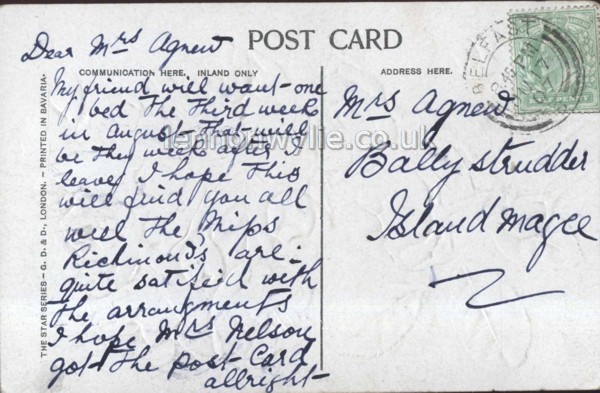 Dear Mrs Agnew
POST CARD
COMMUNICATION HERE. INLAND ONLY
ADDRESS HERE.
My friend will want one
bed The Third week
in august That will
be They week after I
leave I hope This
will find you all
well The Miss
Richmond's are
quite satisfid with
the arrangments
I hope Mrs Nelson
got The post Card
allright
Mrs Agnew
Ballystrudder
Island magee
BELFAST
THE STAR SERIES – G. D. & D., LONDON. – PRINTED IN BAVARIA.
lennonwylie.co.uk